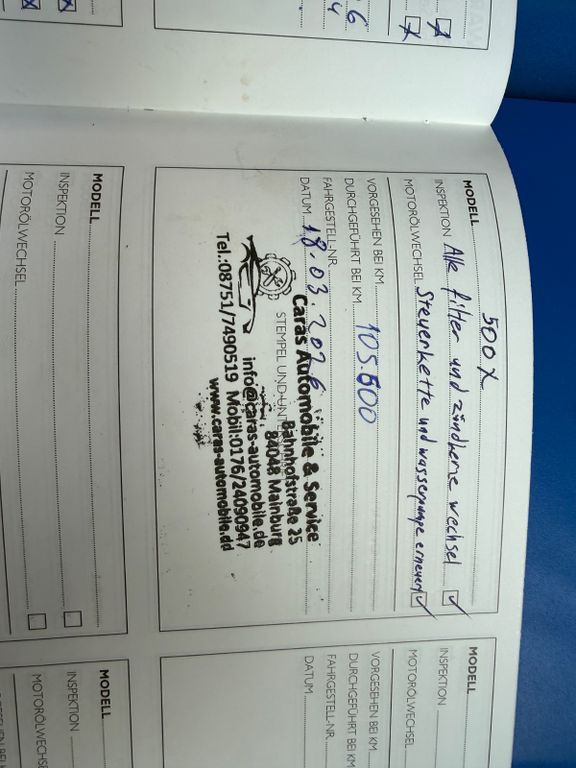 MODELL 500 X
INSPEKTION Alle filter und zündkerze wechsel
MOTORÖLWECHSEL Steuerkette und wasserpumpe erneuert
VORGESEHEN BEI KM
DURCHGEFÜHRT BEI KM 105.500
FAHRGESTELL-NR.
DATUM 18.03.2026
STEMPEL UND
Caras Automobile & Service
Bahnhofstraße 25
84048 Mainburg
info@caras-automobile.de
Tel.:08751/7490519 Mobil:0176/24090947
www.caras-automobile.de
MODELL
INSPEKTION
MOTORÖLWECHSEL
MODELL
INSPEKTION
MOTORÖLWECHSEL
VORGESEHEN BEI KM
DURCHGEFÜHRT BEI KM
FAHRGESTELL-NR.
DATUM
MODELL
INSPEKTION
MOTORÖLWECHSE